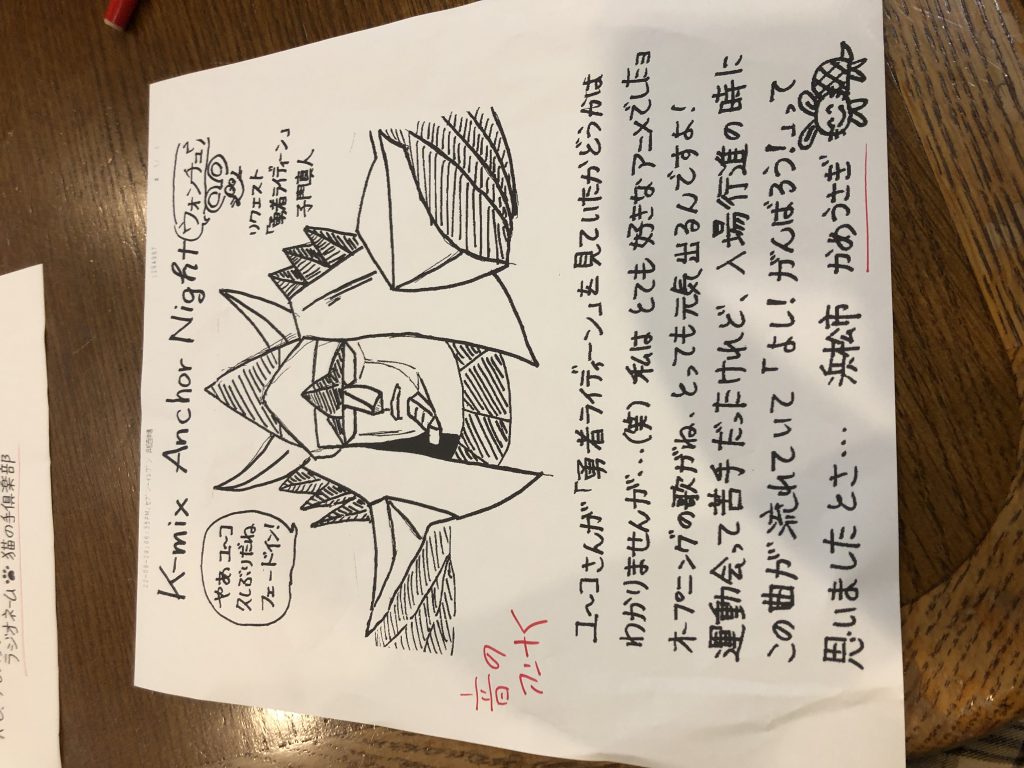 K-mix Anchor Night ウォンチュ!
リクエスト
「勇者ライディーン」
子門真人
やあユ〜コ
久しぶりだね
フェードイン!
音の
ユ〜コさんが「勇者ライディーン」を見ていたかどうかは
わかりませんが...(笑) 私は とても 好きな アニメでしたョ
オープニングの歌がね、とっても元気出るんですよ!
運動会って苦手だったけれど、入場行進の時に
この曲が流れていて「よし! がんばろう!」って
思いましたとさ... 浜松市 かめうさぎ
ラジオネーム 猫の手倶楽部